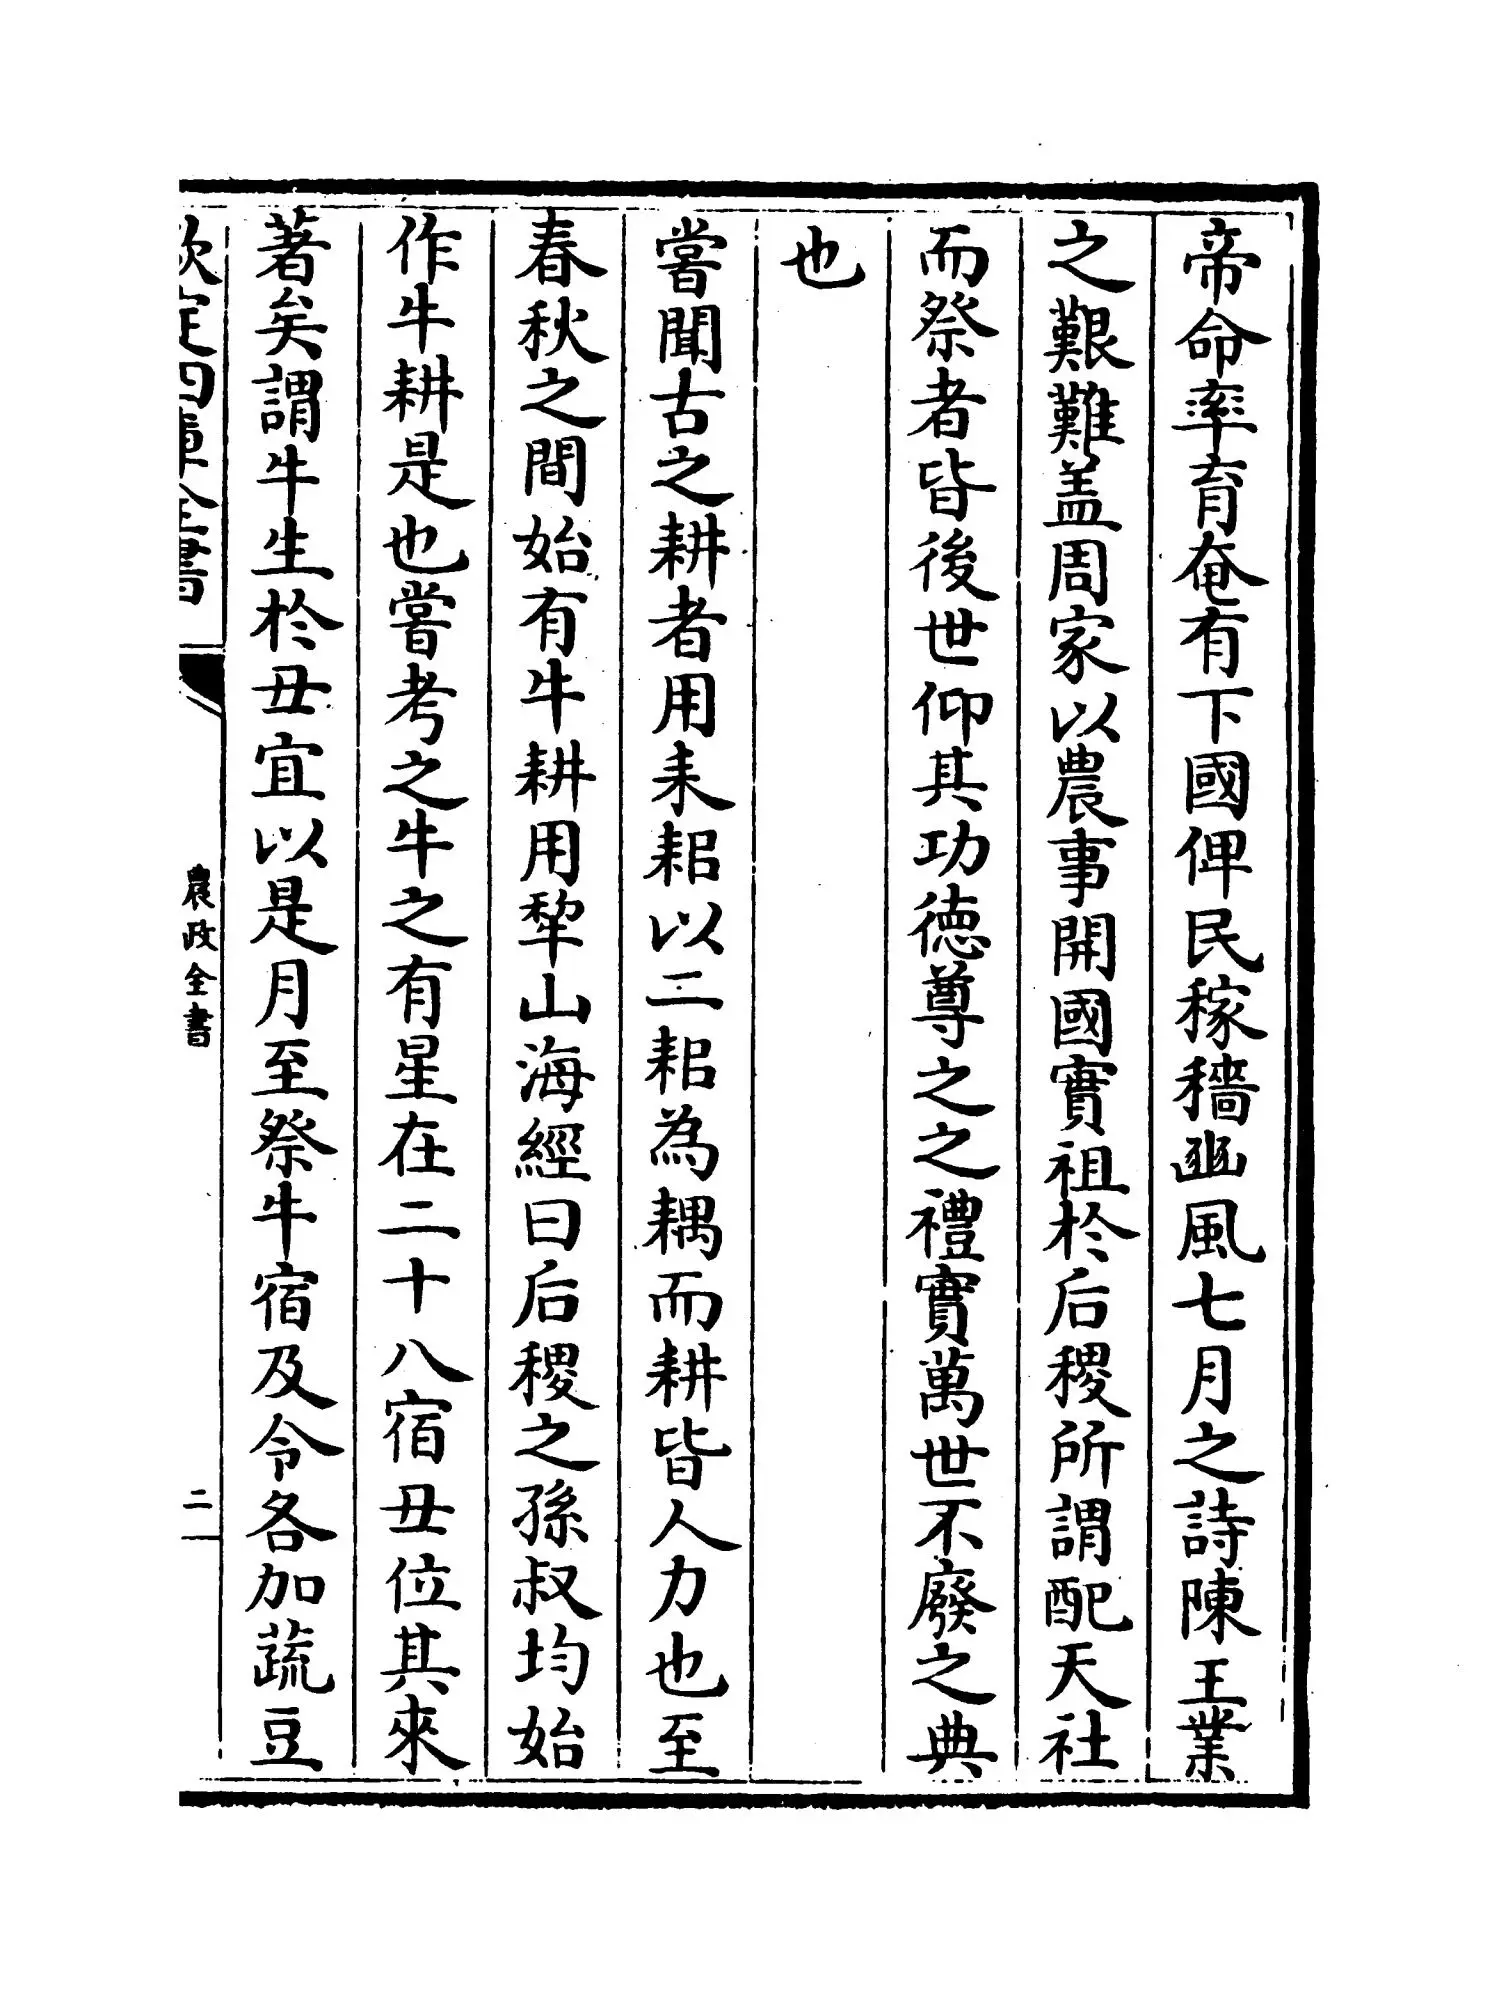 帝命率育奄有下國俾民稼穡豳風七月之詩陳王業
之艱難盖周家以農事開國實祖於后稷所謂配天社
而祭者皆後世仰其功德尊之之禮實萬世不廢之典
也
嘗聞古之耕者用耒耜以二耜為耦而耕皆人力也至
春秋之間始有牛耕用犂山海經曰后稷之孫叔均始
作牛耕是也嘗考之牛之有星在二十八宿丑位其來
著矣謂牛生於丑宜以是月至祭牛宿及令各加蔬豆
欽定四庫全書
農政全書
二